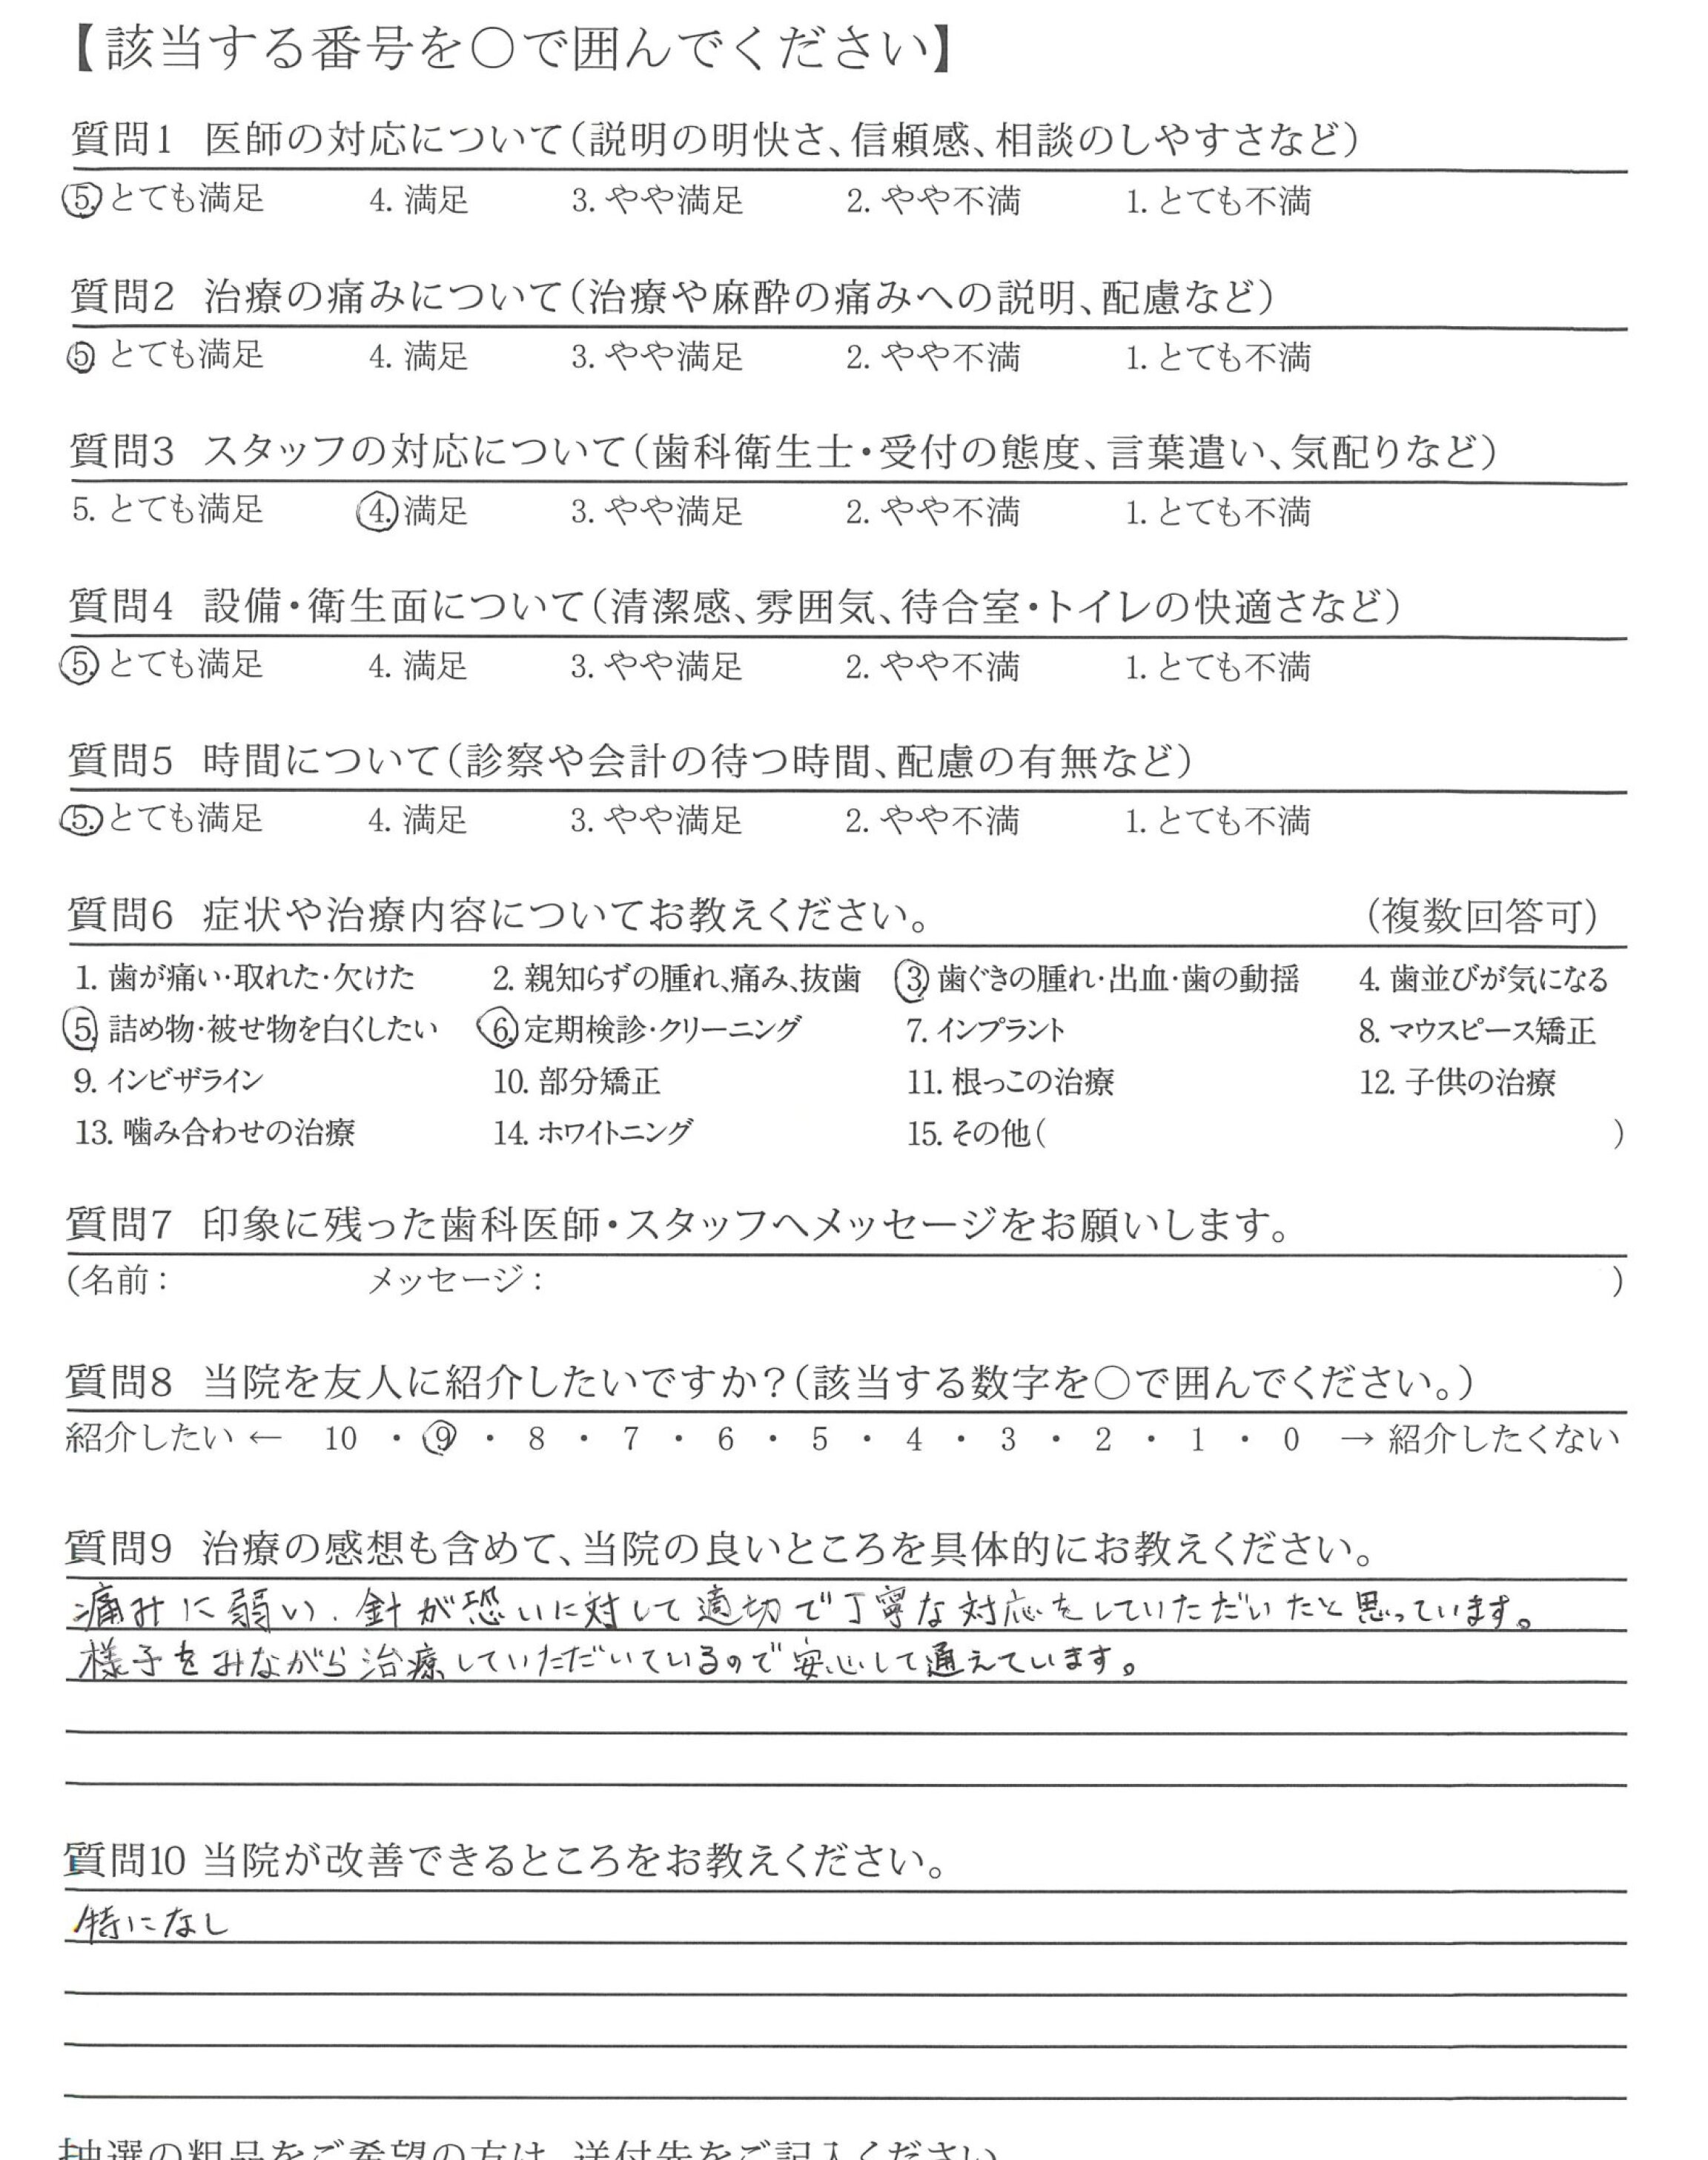 【該当する番号を〇で囲んでください】
質問1 医師の対応について(説明の明快さ、信頼感、相談のしやすさなど)
5. とても満足 4. 満足 3. やや満足 2. やや不満 1. とても不満
質問2 治療の痛みについて(治療や麻酔の痛みへの説明、配慮など)
5. とても満足 4. 満足 3. やや満足 2. やや不満 1. とても不満
質問3 スタッフの対応について(歯科衛生士・受付の態度、言葉遣い、気配りなど)
5. とても満足 4. 満足 3. やや満足 2. やや不満 1. とても不満
質問4 設備・衛生面について(清潔感、雰囲気、待合室・トイレの快適さなど)
5. とても満足 4. 満足 3. やや満足 2. やや不満 1. とても不満
質問5 時間について(診察や会計の待つ時間、配慮の有無など)
5. とても満足 4. 満足 3. やや満足 2. やや不満 1. とても不満
質問6 症状や治療内容についてお教えください。 (複数回答可)
1. 歯が痛い・取れた・欠けた 2. 親知らずの腫れ、痛み、抜歯 3. 歯ぐきの腫れ・出血・歯の動揺 4. 歯並びが気になる
5. 詰め物・被せ物を白くしたい 6. 定期検診・クリーニング 7. インプラント 8. マウスピース矯正
9. インビザライン 10. 部分矯正 11. 根っこの治療 12. 子供の治療
13. 噛み合わせの治療 14. ホワイトニング 15. その他( )
質問7 印象に残った歯科医師・スタッフへメッセージをお願いします。
(名前: メッセージ: )
質問8 当院を友人に紹介したいですか?(該当する数字を〇で囲んでください。)
紹介したい ← 10 ・ 9 ・ 8 ・ 7 ・ 6 ・ 5 ・ 4 ・ 3 ・ 2 ・ 1 ・ 0 → 紹介したくない
質問9 治療の感想も含めて、当院の良いところを具体的にお教えください。
痛みに弱い、針が恐いに対して適切で丁寧な対応をしていただいたと思っています。
様子をみながら治療していただいているので安心して通えています。
質問10 当院が改善できるところをお教えください。
特になし
抽選の粗品をご希望の方は、送付先をご記入ください